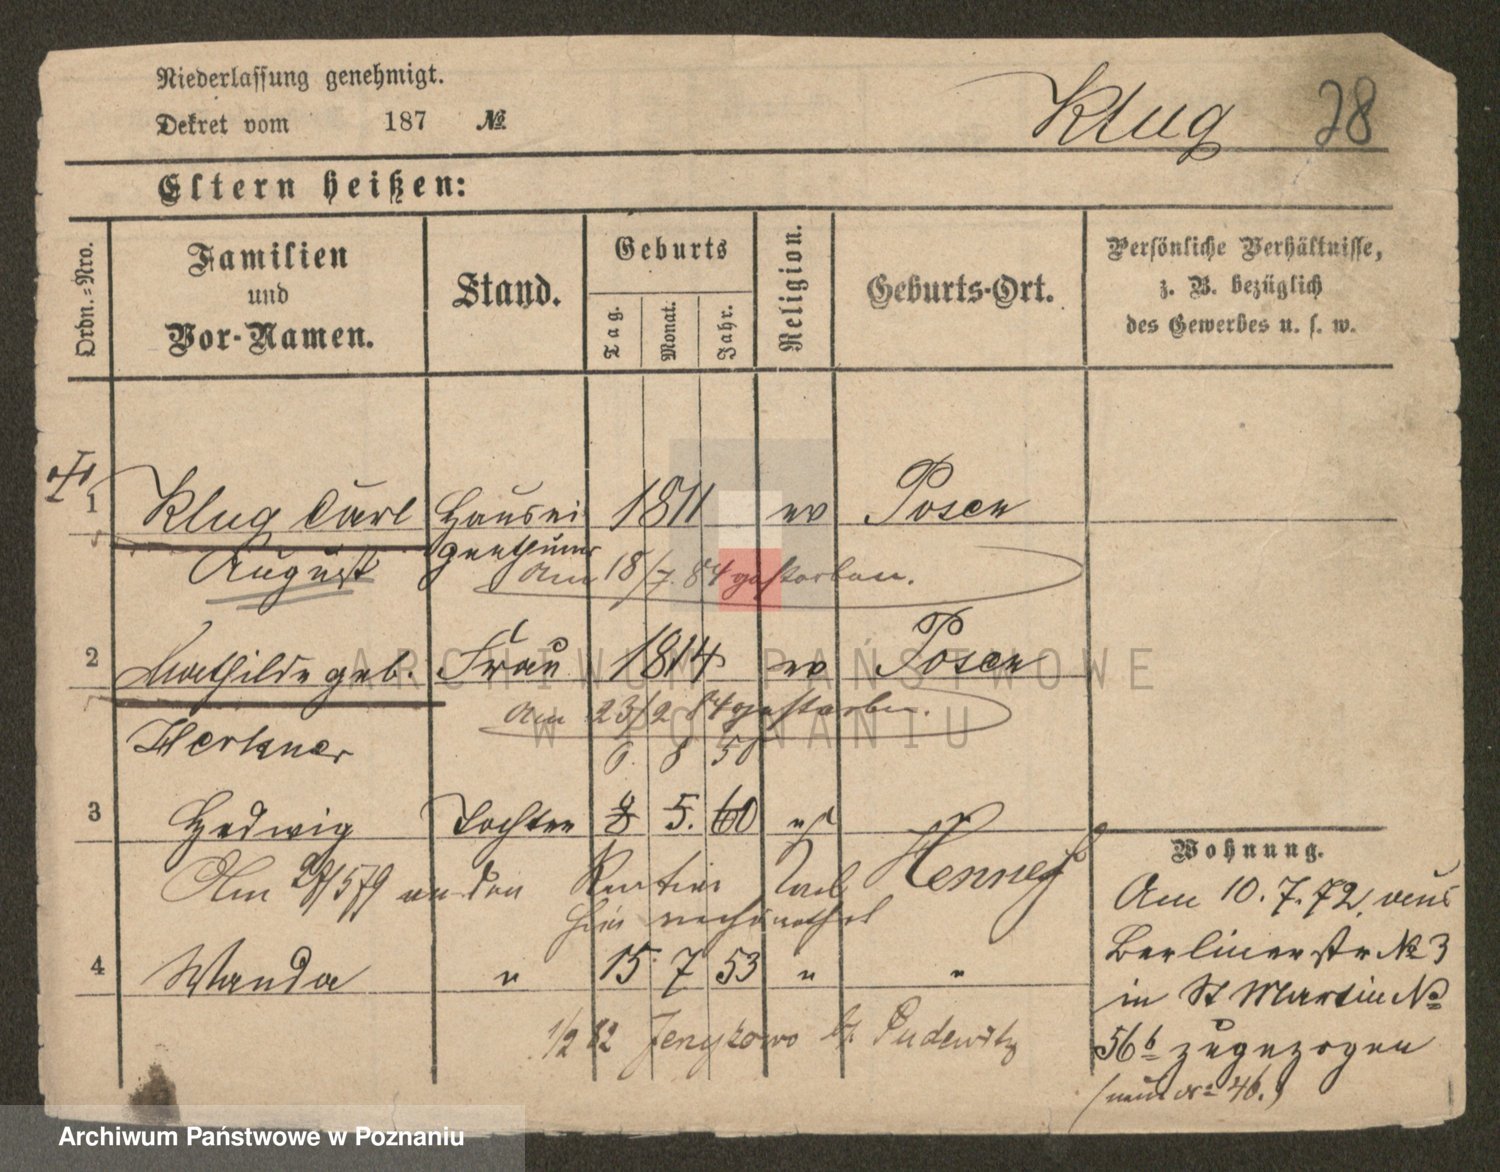 Niederlassung genehmigt.
Dekret vom 187 №
Klug 28
Eltern heißen:
Ordn.-Nro.
Familien
und
Vor-Namen.
Stand.
Geburts
Tag.
Monat.
Jahr.
Religion.
Geburts-Ort.
Persönliche Verhältnisse,
z. B. bezüglich
des Gewerbes u. s. w.
1 Klug Carl Hausei 1811 ev Posen
August genthümer
am 18/7. 84 gestorben.
2 Mathilde geb. Frau 1814 ev Posen
am 23/2 84 gestorben.
Herkner
6. 8 50
3 Hedwig Tochter 8 5. 60 " "
Am 27/5 79 an den Rentier Carl Hennes
hier verheirathet
4 Wanda " 15 7 53 " "
1/2 82 Jerzykowo b. Pudewitz
Wohnung.
Am 10.7.72, aus
Berlinerstr № 3
in St Martin №
56b zugezogen
(neue № 46.)
ARCHIWUM PAŃSTWOWE
W POZNANIU
Archiwum Państwowe w Poznaniu